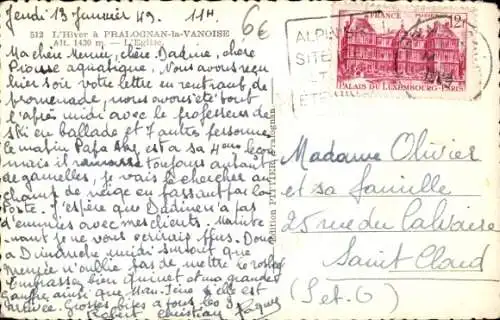 Jeudi 13 Janvier 49. 11H.
6€
512 L'Hiver à PRALOGNAN-la-VANOISE
Alt. 1430 m - L'Eglise
Ma chère Mémée, chère Dadine, chère
aquatique, Nous avons reçu
hier soir votre lettre en rentrant de
promenade, nous avons été tout
l'après midi avec le professeur de
ski en ballade et 7 autres personnes
le matin Papa est à sa 4ème leçon
mais il ramasse toujours autant
de gamelles, je vais le chercher au
champ de neige en passant par la
poste. J'espère que Dadine n'a pas
d'ennuies avec mes clients. Mainte
nant je ne vous écrirais plus. Donc
à Dimanche midi surtout que
Mémée n'oublie pas de mettre le
Embrasse bien
ainsi que si elle est
arrivée. Grosses bises à tous les 3
Robert Christian Jacques
Edition PITTIER Pralognan
ALPIN
SITE
ETE
FRANCE
POSTES
12F
PALAIS DU LUXEMBOURG-PARIS
Madame Olivier
et sa famille
25 rue du Calvaire
Saint Cloud
(S.et.O)